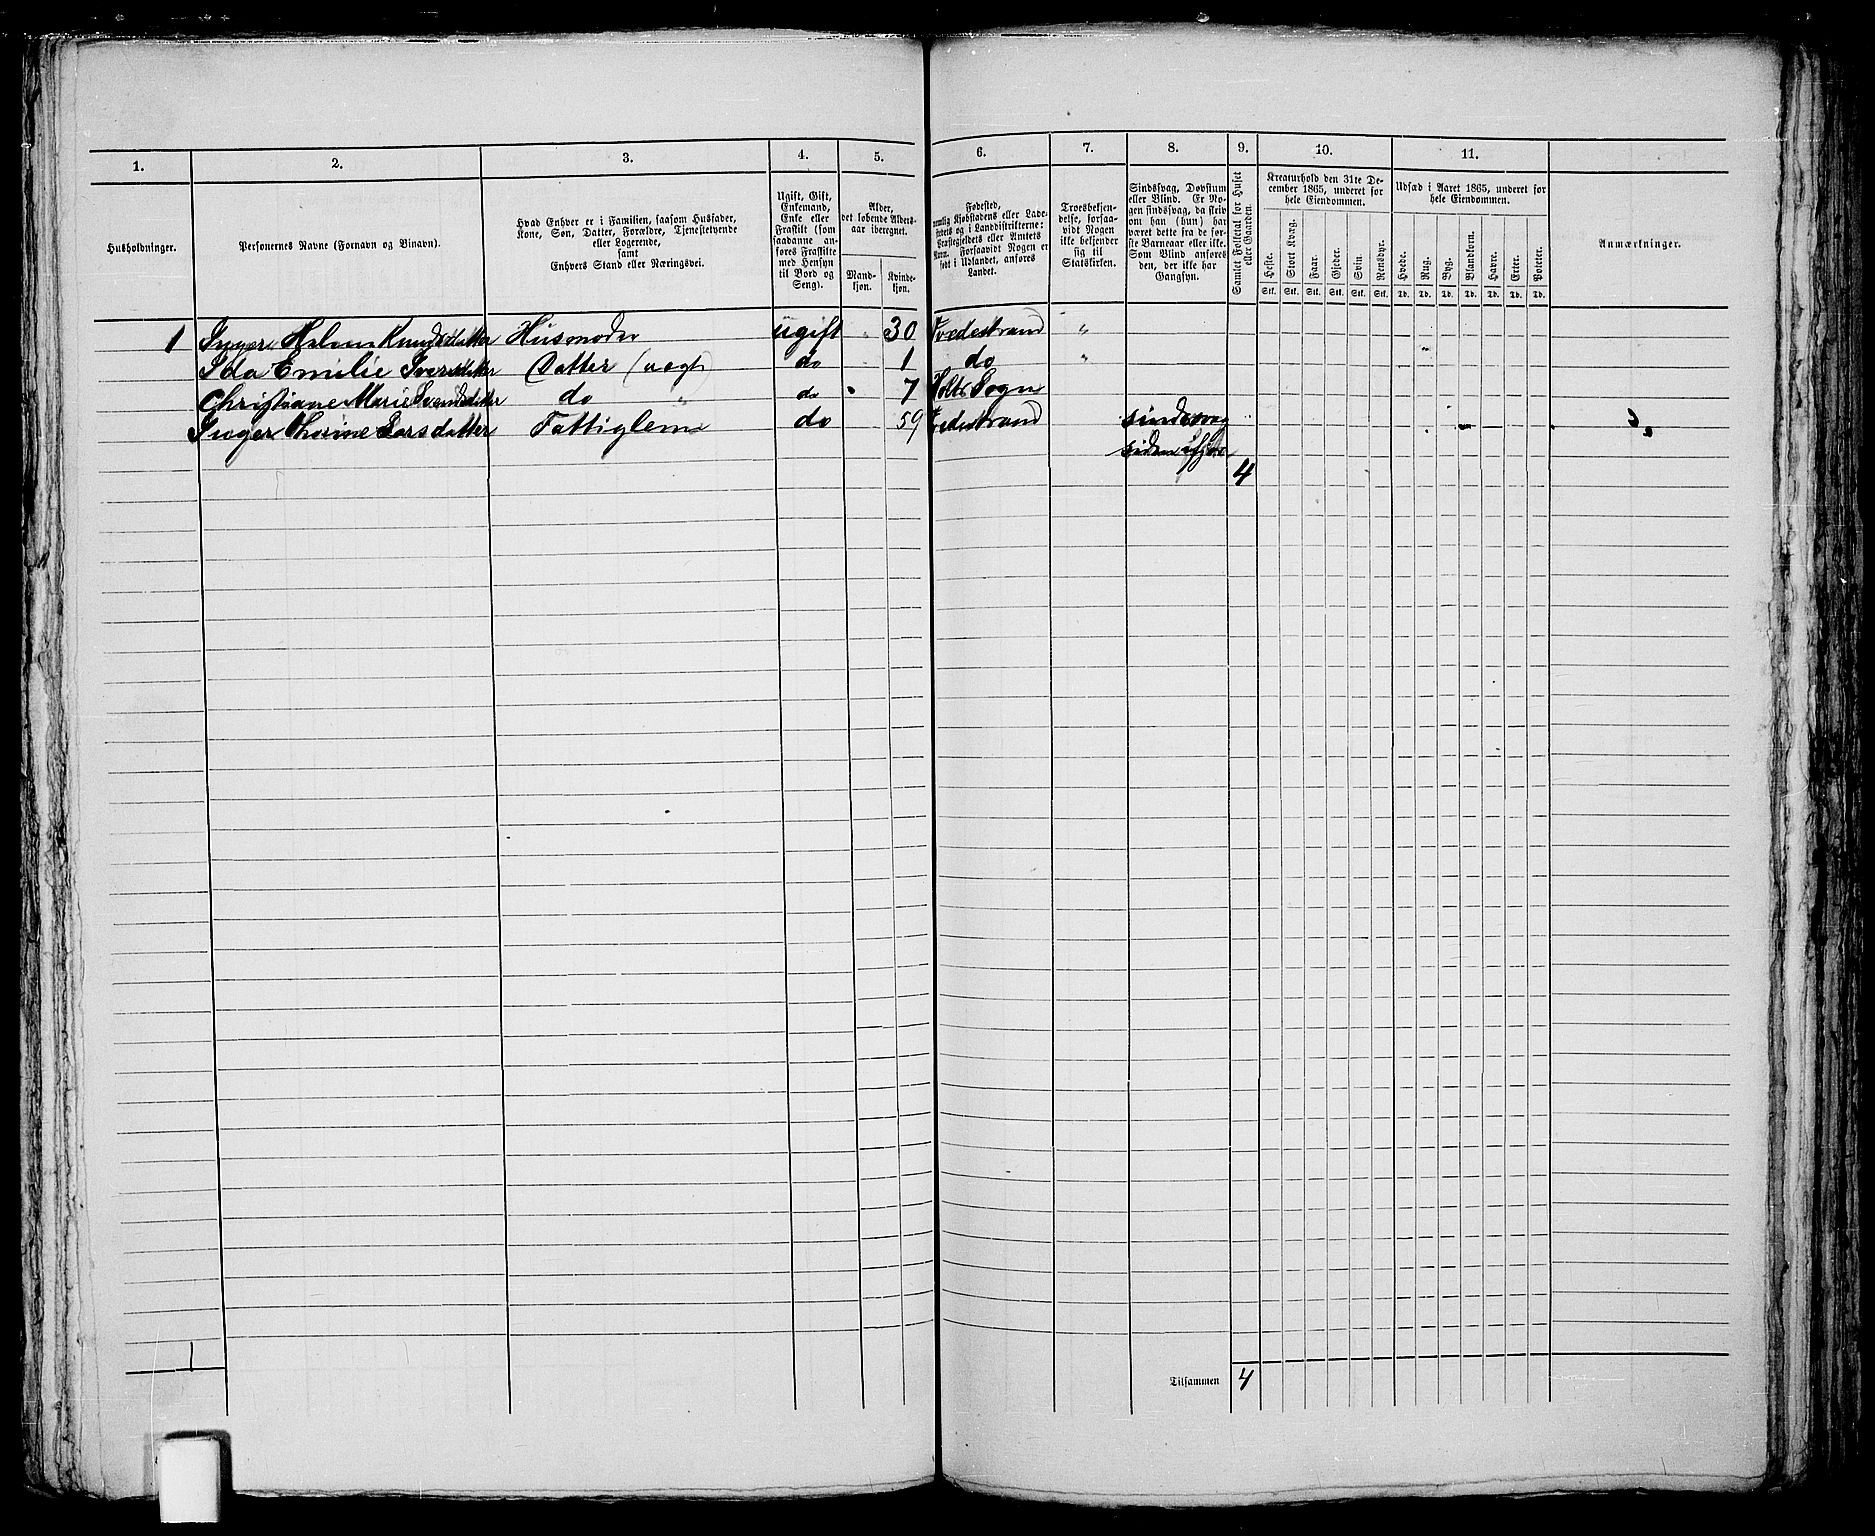 1. 2. 3. 4. 5. 6. 7. 8. 9. 10. 11.
Husholdninger.
Personernes Navne (Fornavn og Binavn).
Hvad Enhver er i Familien, saasom Husfader,
Kone, Søn, Datter, Forældre, Tjenestetyende
eller Logerende,
samt
Enhvers Stand eller Næringsvei.
Ugift, Gift,
Enkemand,
Enke eller
Fraskilt (som
saadanne an-
føres Fraskilte
med Hensyn
til Bord og
Seng).
Alder,
det løbende Alders-
aar iberegnet.
Mand-
kjøn.
Kvinde-
kjøn.
Fødested,
nemlig Kjøbstadens eller Lade-
stedets og i Landdistrikterne:
Præstegjeldets eller Amtets
Navn. Forsaavidt Nogen er
født i Udlandet, anføres
Landet.
Troesbekjen-
delse, forsaa-
vidt Nogen
ikke bekjender
sig til
Statskirken.
Sindssvag, Døvstum
eller Blind. Er No-
gen sindssvag, da skriv
om han (hun) har
været dette fra de før-
ste Barneaar eller ikke.
Som Blind anføres
den, der ikke har
Gangsyn.
Samlet Folketal for Huset
eller Gaarden.
Kreaturhold den 31te De-
cember 1865, underet for
hele Eiendommen.
Heste. Stort Kvæg. Faar. Gjeder. Svin. Rensdyr.
Stk. Stk. Stk. Stk. Stk. Stk.
Udsæd i Aaret 1865, underet for
hele Eiendommen.
Hvede. Rug. Byg. Blandkorn. Havre. Erter. Poteter.
Td. Td. Td. Td. Td. Td. Td.
Anmærkninger.
1 Inger Helene Knudsdatter Husmoder ugift " 30 Tvedestrand "
Ida Emilie Iversdatter Datter (uægt) do 1 do "
Christiane Marie Svendsdatter do " do 7 Holts Sogn
Inger Thorine Larsdatter Fattiglem do 59 Tvedestrand sindssvag
siden
4
Tilsammen 4
1